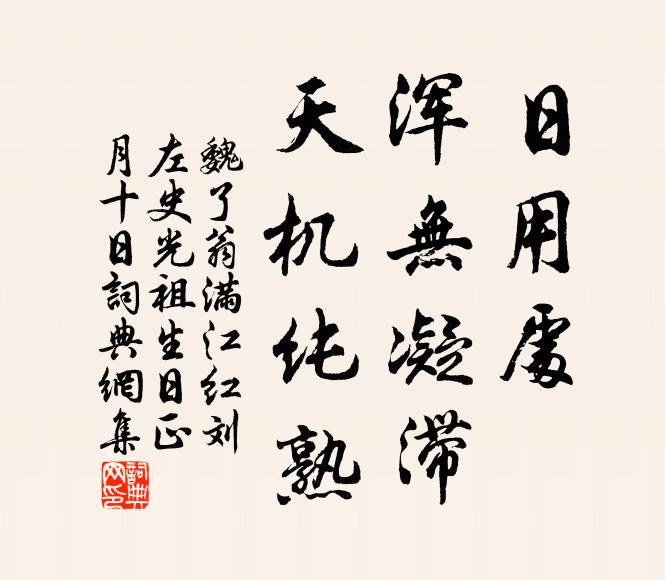 日用處
浑無凝滞
天机纯熟
魏了翁满江红刘
左史光祖生日正
月十日詞典網集
詞典网印